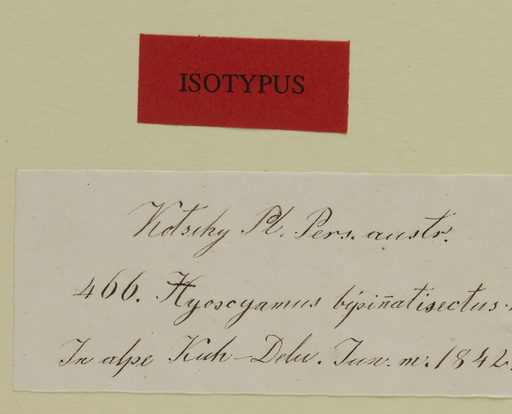 ISOTYPUS
Kotschy Pl. Pers. austr.
466. Hyoscyamus bipin̄atisectus.
In alpe Kuh-Delu. Jun. m: 1842.